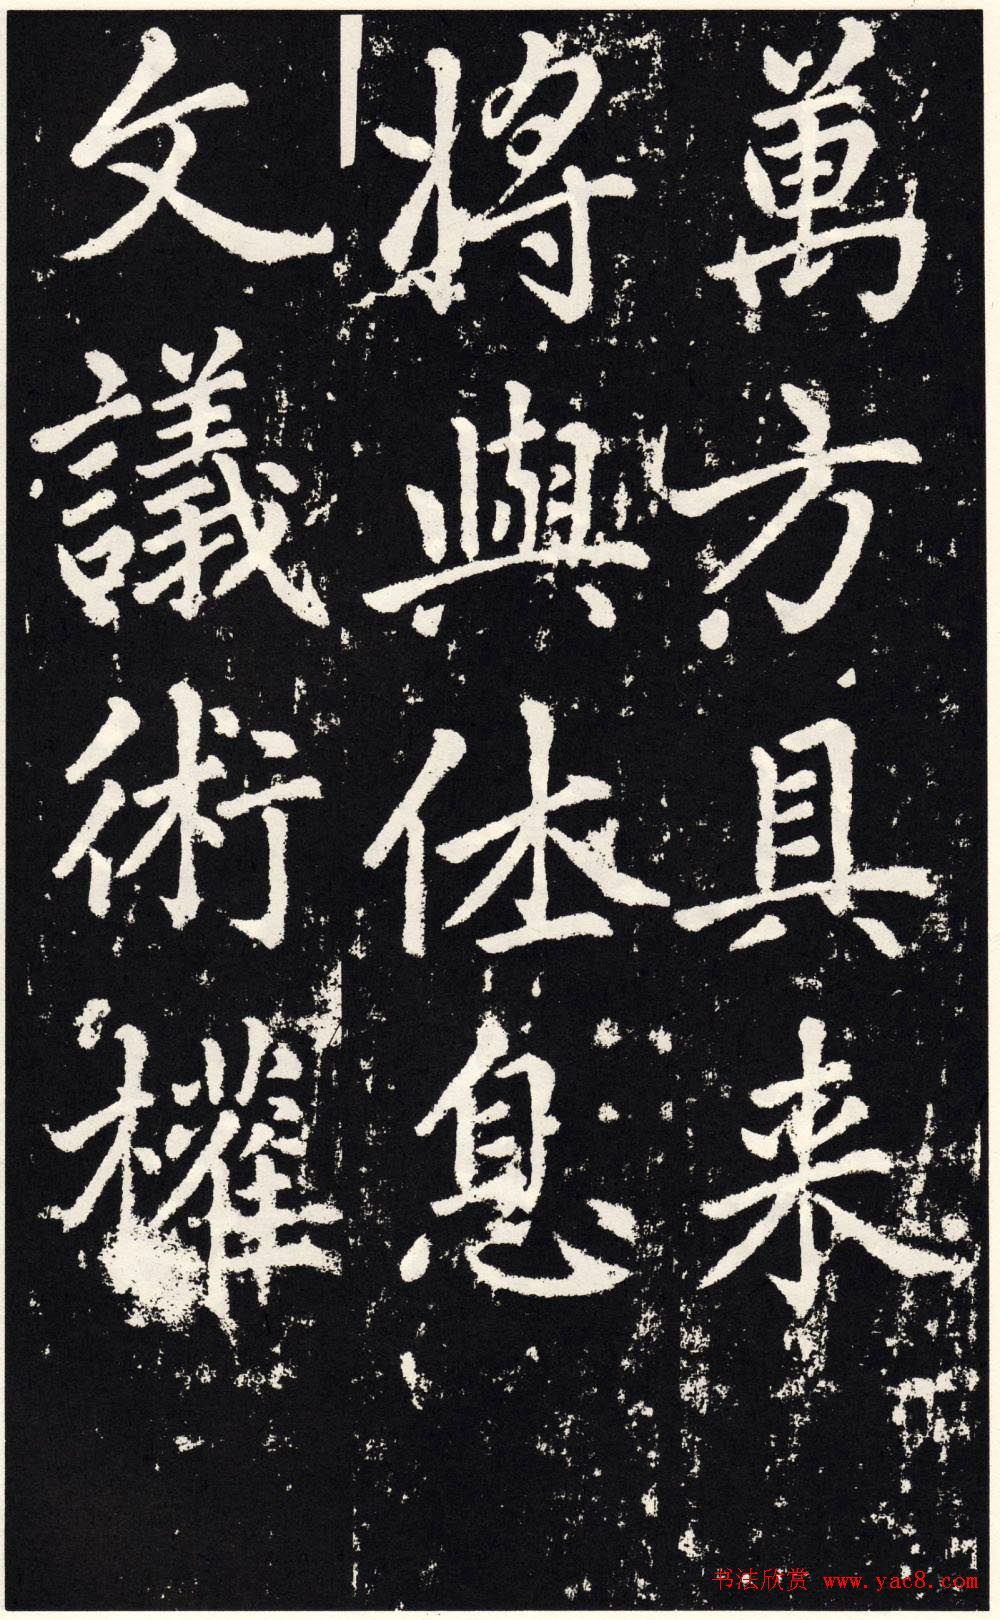 萬方具来
將與休息
文議術櫂
书法欣赏 www.yac8.com